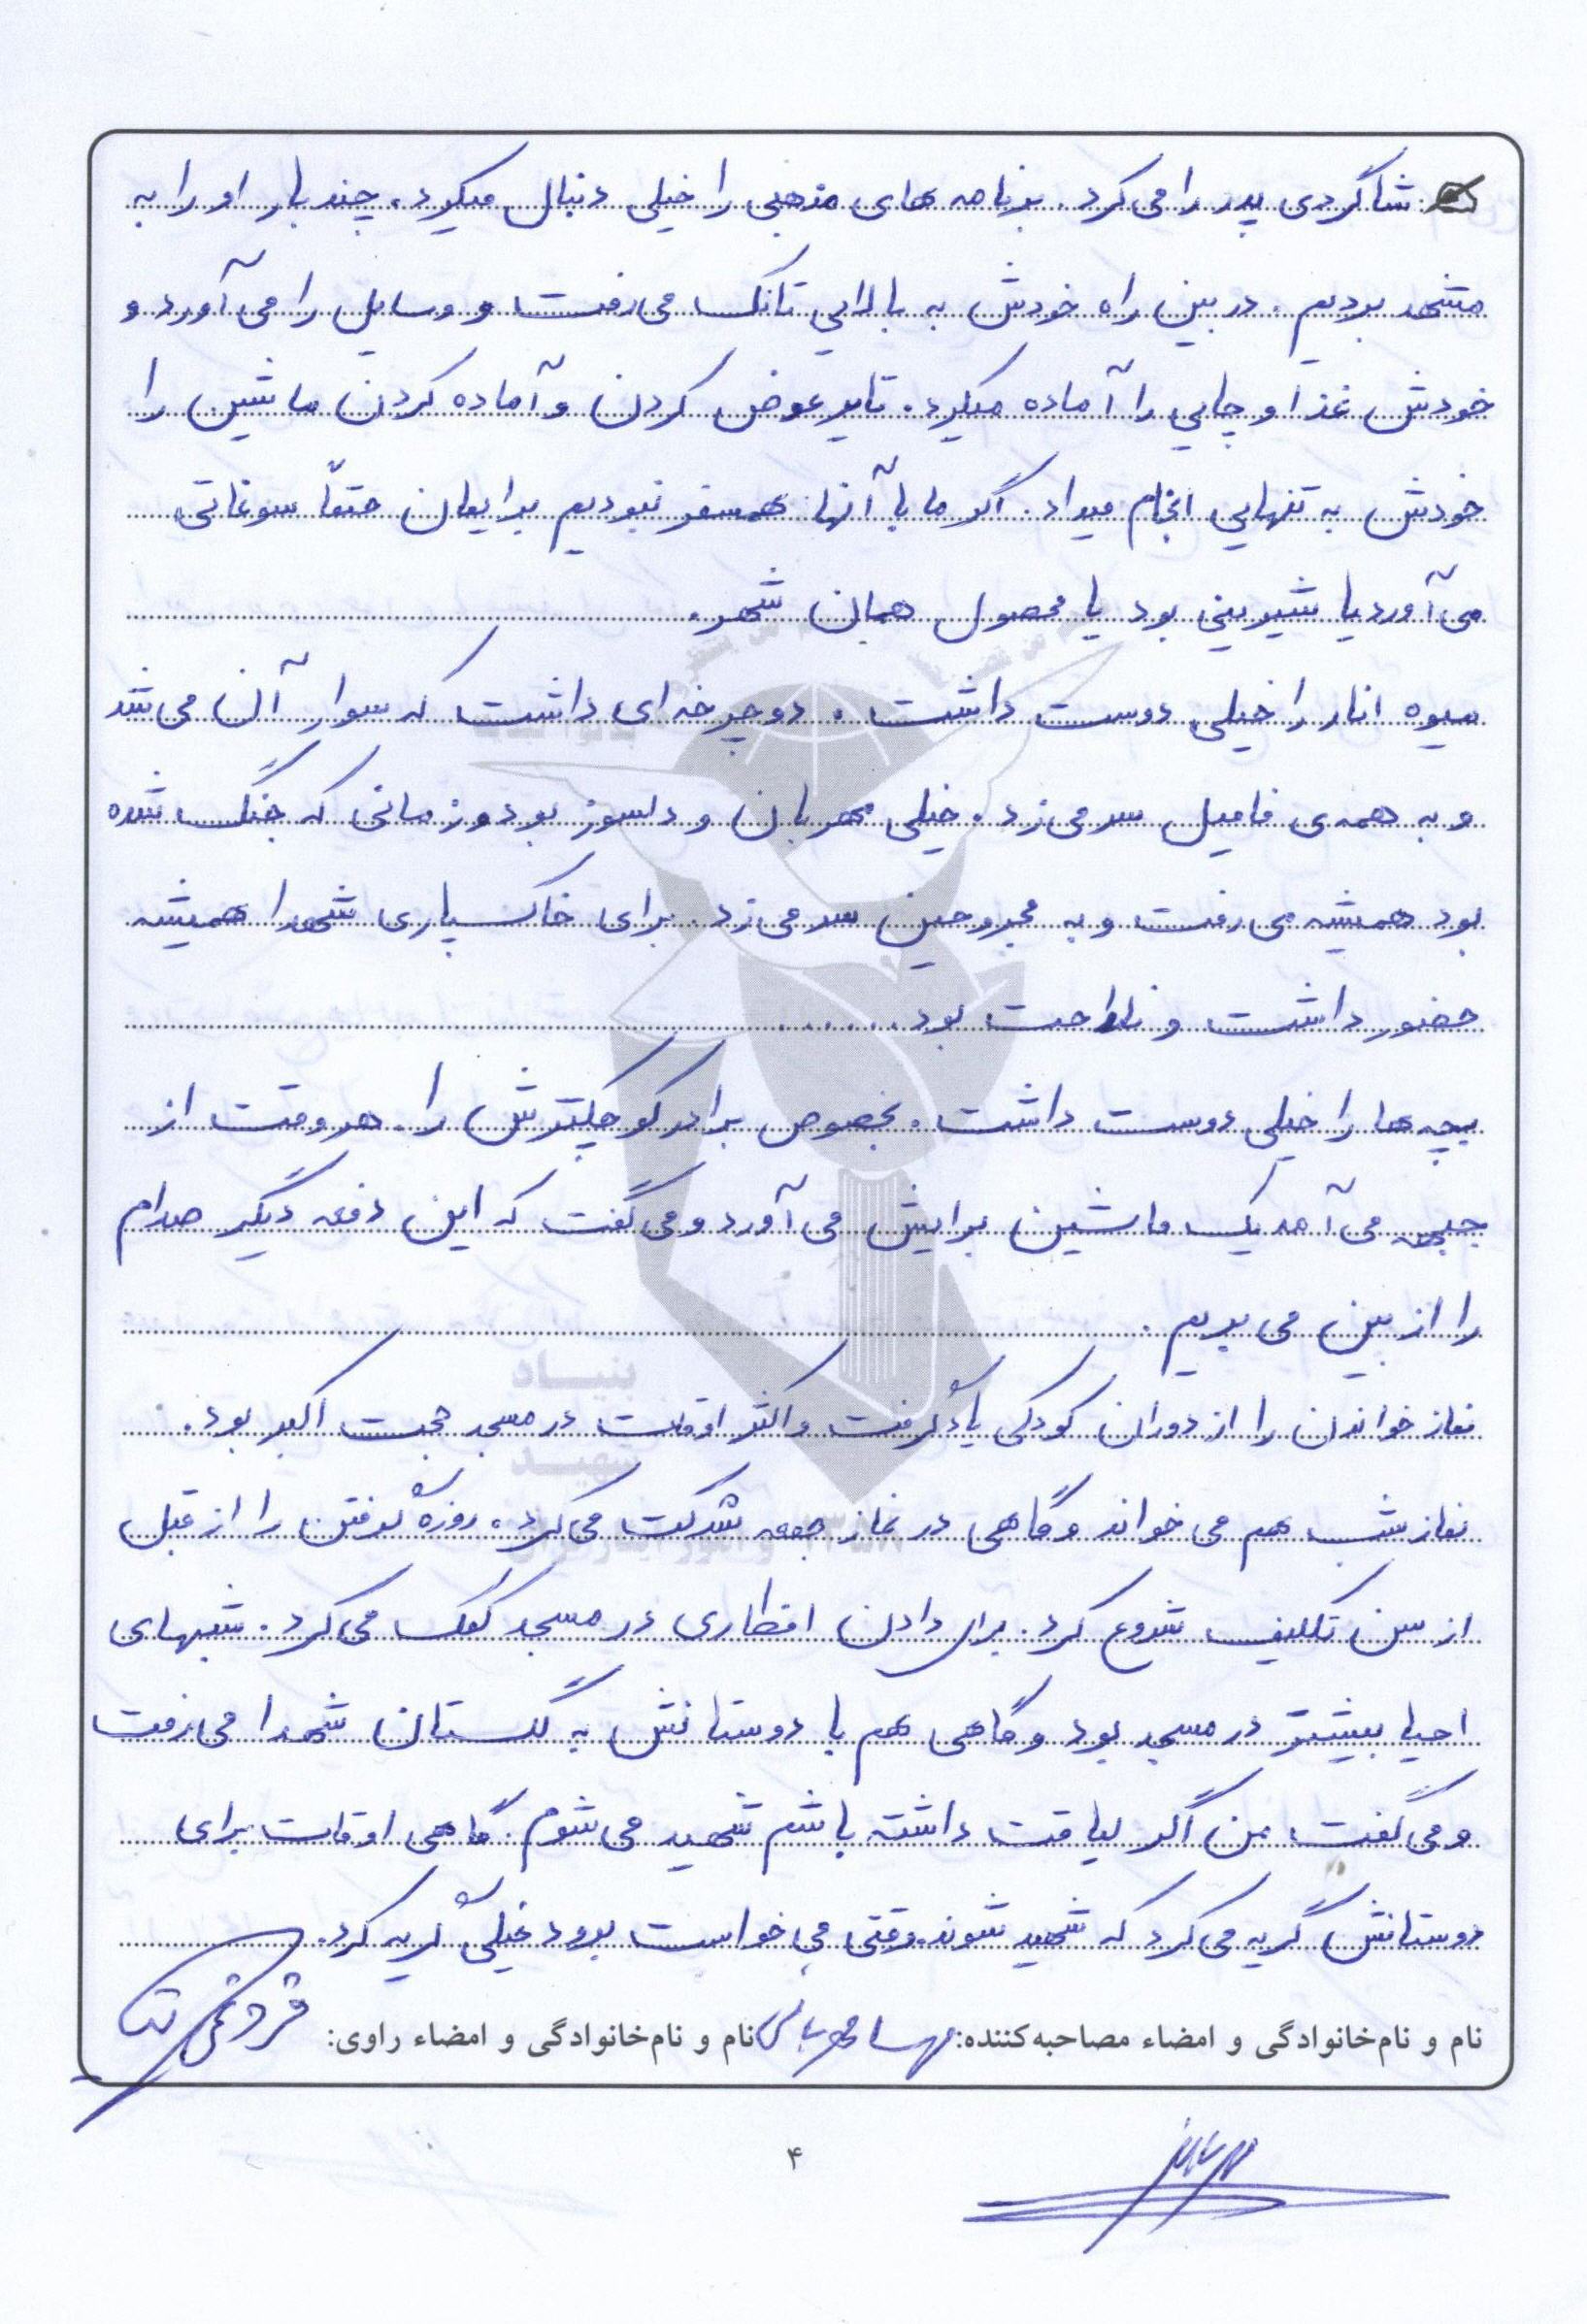 شاگردی پدر را می کرد. برنامه های مذهبی را خیلی دنبال میکرد. چند بار او را به
مشهد بردیم. در بین راه خودش به بالایی تانک می رفت و وسایل را می آورد و
خودش غذا و چایی را آماده میکرد. تایر عوض کردن و آماده کردن ماشین را
خودش به تنهایی انجام میداد. اگر ما با آنها همسفر نبودیم برایمان حتماً سوغاتی
می آورد یا شیرینی بود یا محصول همان شهر.
میوه انار را خیلی دوست داشت. دوچرخه ای داشت که سوار آن می شد
و به همه ی فامیل سر می زد. خیلی مهربان و دلسوز بود و زمانی که جنگ شده
بود همیشه می رفت و به مجروحین سر می زد. برای خاکسپاری شهدا همیشه
حضور داشت و ناراحت بود......
بچه ها را خیلی دوست داشت. بخصوص برادر کوچکترش را. هر وقت از
جبهه می آمد یک ماشین برایش می آورد و می گفت که این دفعه دیگر صدام
را از بین می بریم.
نماز خواندن را از دوران کودکی یاد گرفت و اکثر اوقات در مسجد حجت اکبر بود.
نماز شب هم می خواند و گاهی در نماز جمعه شرکت می کرد. روزه گرفتن را از قبل
از سن تکلیف شروع کرد. برای دادن افطاری در مسجد کمک می کرد. شبهای
احیا بیشتر در مسجد بود و گاهی هم با دوستانش به گلستان شهدا می رفت
و می گفت من اگر لیاقت داشته باشم شهید می شوم. گاهی اوقات برای
دوستانش گریه می کرد که شهید شوند. وقتی می خواست برود خیلی گریه کرد.
نام و نام‌خانوادگی و امضاء مصاحبه‌کننده: نام و نام‌خانوادگی و امضاء راوی:
۴
بنیاد
شهید